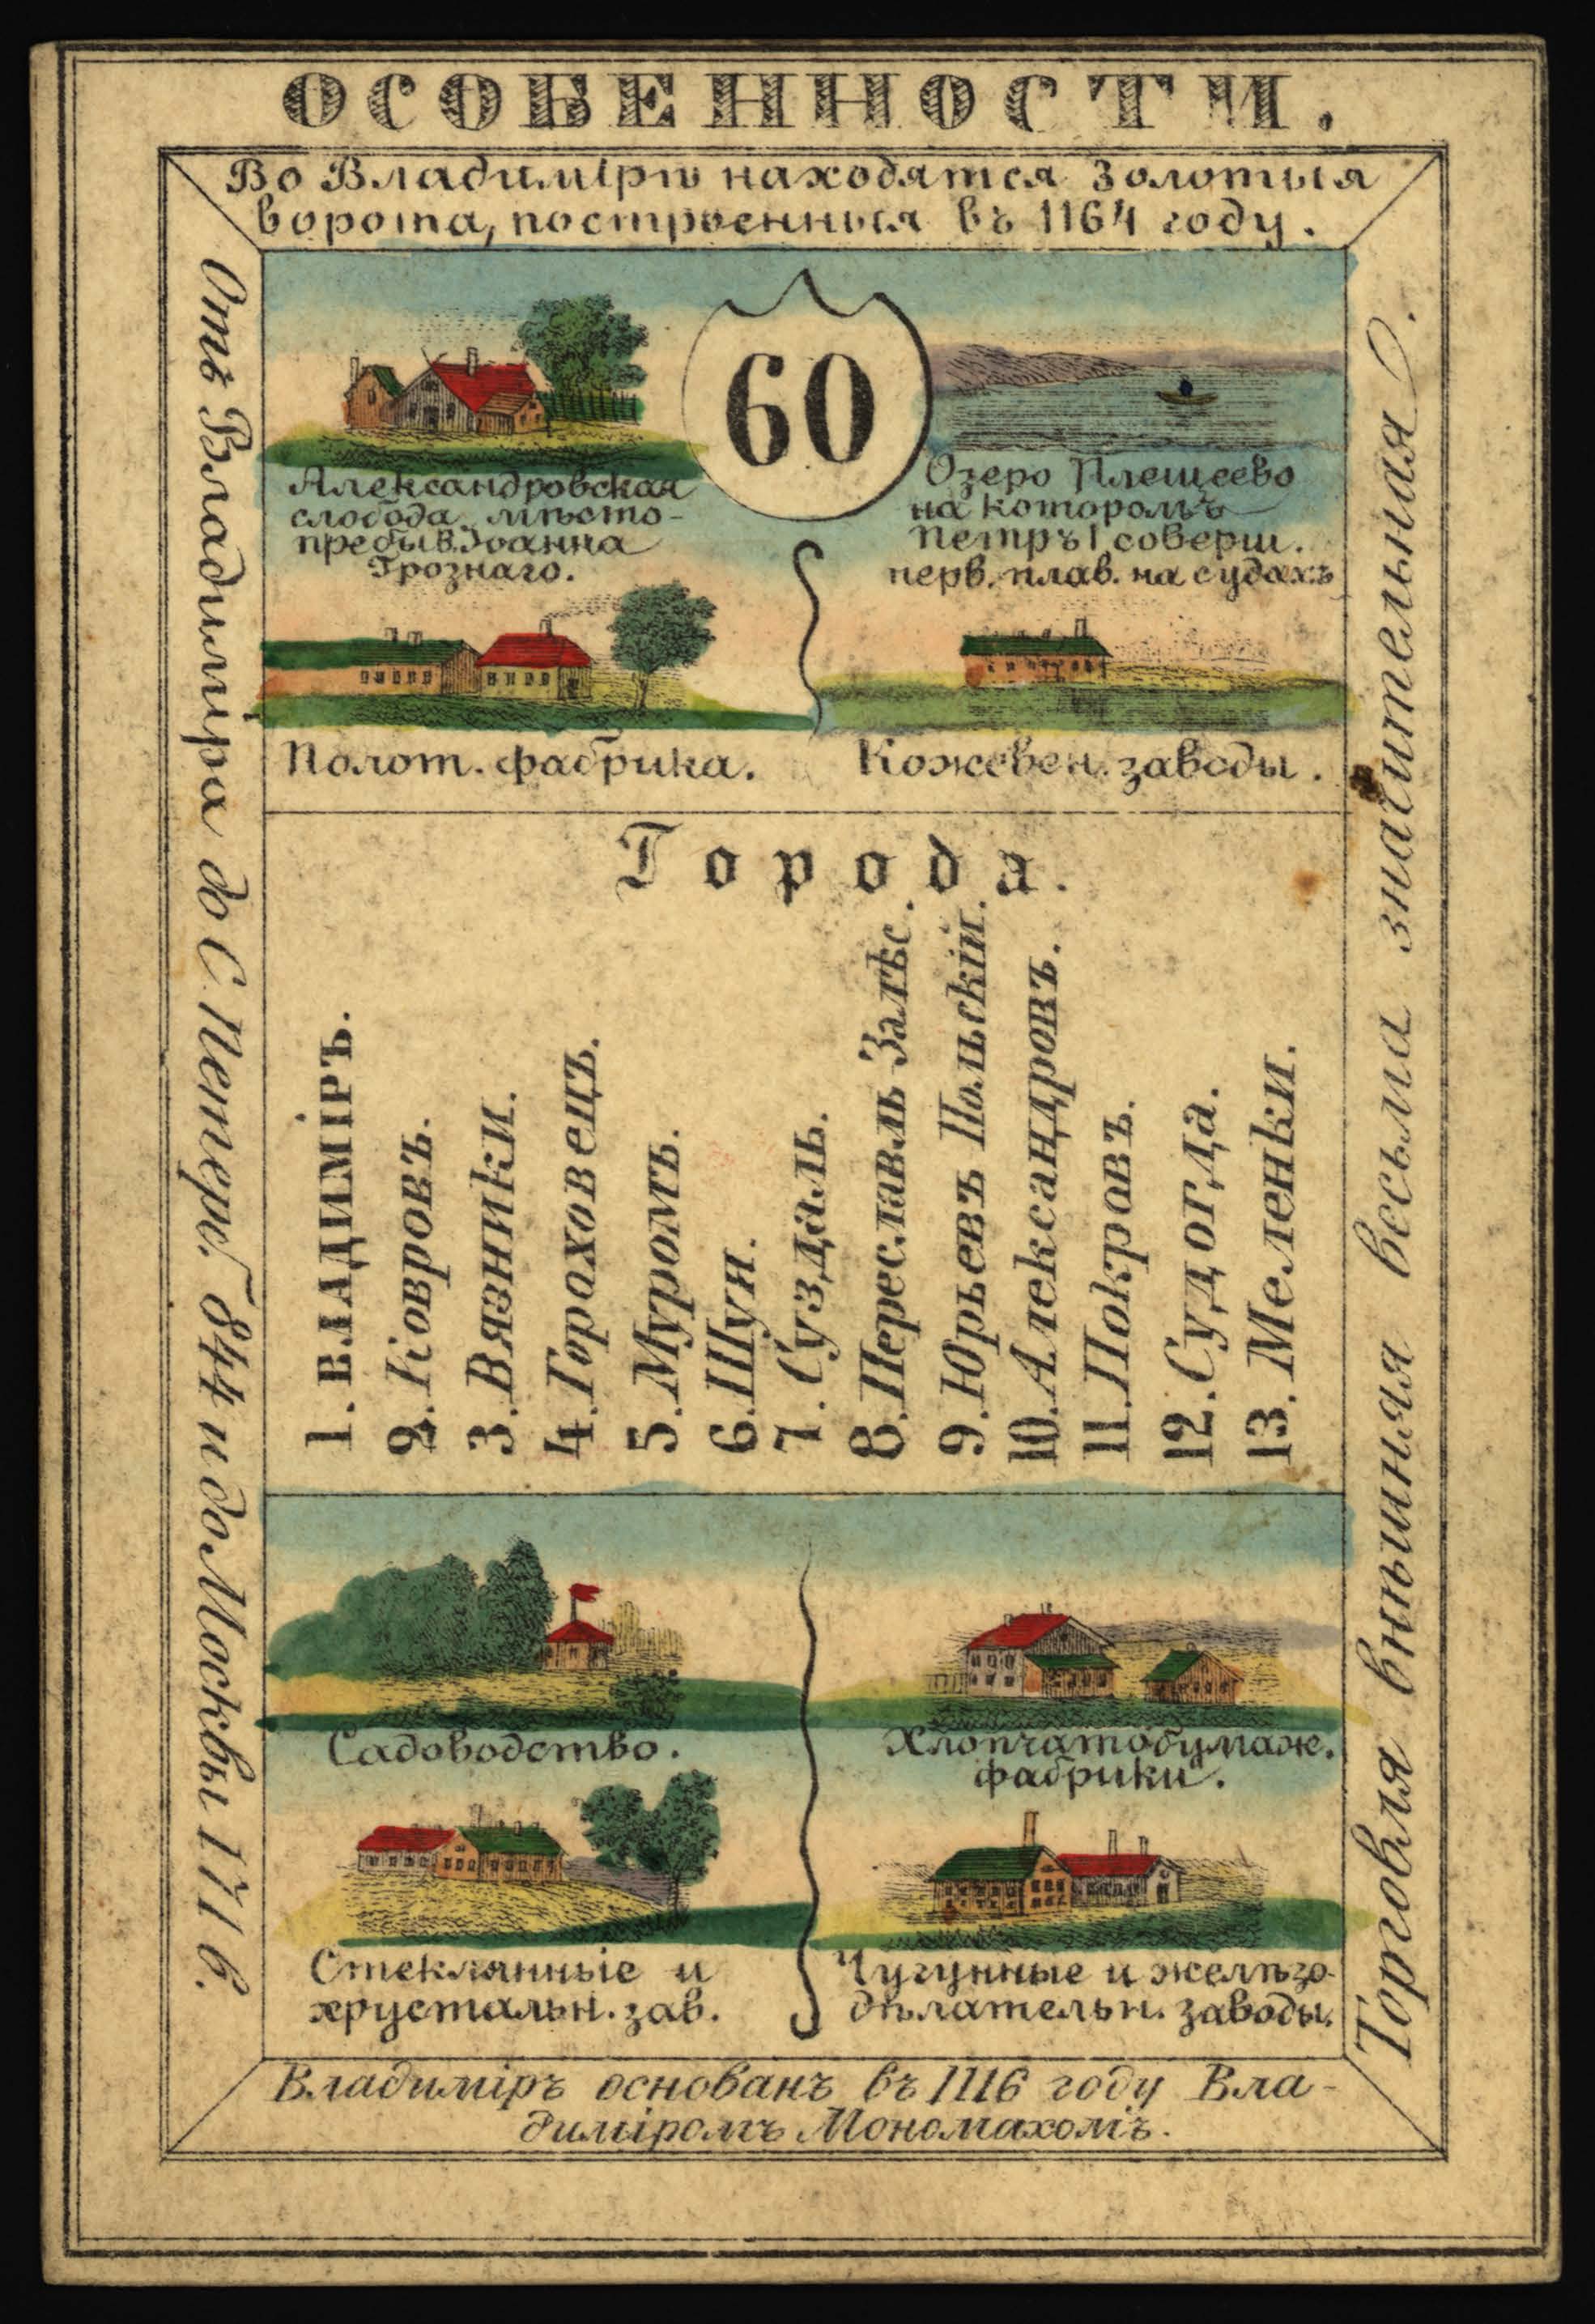 ОСОБЕННОСТИ.
Во Владимірѣ находятся Золотыя
ворота, построенныя въ 1164 году.
Отъ Владиміра до С. Петерб. 844 и до Москвы 171 в.
60
Александровская
слобода, мѣсто-
пребыв. Іоанна
Грознаго.
Озеро Плещеево
на которомъ
Петръ I соверш.
перв. плав. на судахъ
Полот. фабрика.
Кожевен. заводы.
Города.
1. ВЛАДИМІРЪ.
2. Ковровъ.
3. Вязники.
4. Гороховецъ.
5. Муромъ.
6. Шуя.
7. Суздаль.
8. Переславль Залѣс.
9. Юрьевъ Польскій.
10. Александровъ.
11. Покровъ.
12. Судогда.
13. Меленки.
Садоводство.
Хлопчатобумаж.
фабрики.
Стеклянныіе и
хрустальн. зав.
Чугунные и желѣзо-
дѣлательн. заводы.
Торговля внѣшняя весьма значительная.
Владиміръ основанъ въ 1116 году Вла-
диміромъ Мономахомъ.